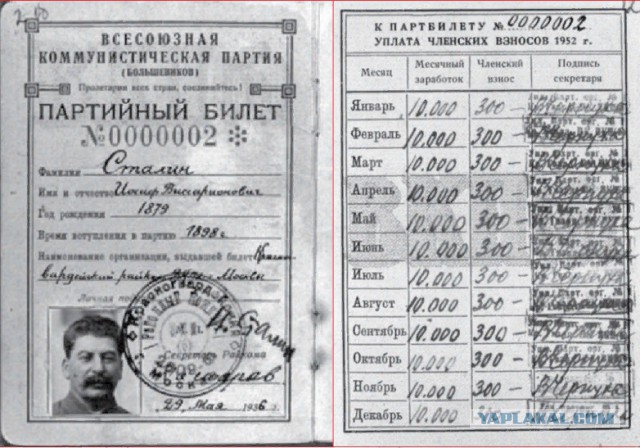 ВСЕСОЮЗНАЯ
КОММУНИСТИЧЕСКАЯ ПАРТИЯ
(БОЛЬШЕВИКОВ)
Пролетарии всех стран, соединяйтесь!
ПАРТИЙНЫЙ БИЛЕТ
№0000002
Фамилия Сталин
Имя и отчество Иосиф Виссарионович
Год рождения 1879
Время вступления в партию 1898 г.
Наименование организации, выдавшей билет Красно-
гвардейский райком Москвы
Личная
Секретарь Райкома
29 Мая 1936 г.
К ПАРТБИЛЕТУ № 0000002
УПЛАТА ЧЛЕНСКИХ ВЗНОСОВ 1952 г.
Месяц Месячный заработок Членский взнос Подпись секретаря
Январь 10.000 300 —
Февраль 10.000 300 —
Март 10.000 300 —
Апрель 10.000 300 —
Май 10.000 300 —
Июнь 10.000 300 —
Июль 10.000 300 —
Август 10.000 300 —
Сентябрь 10.000 300 —
Октябрь 10.000 300 —
Ноябрь 10.000 300 —
Декабрь 10.000 300 —
YAPLAKAL.COM